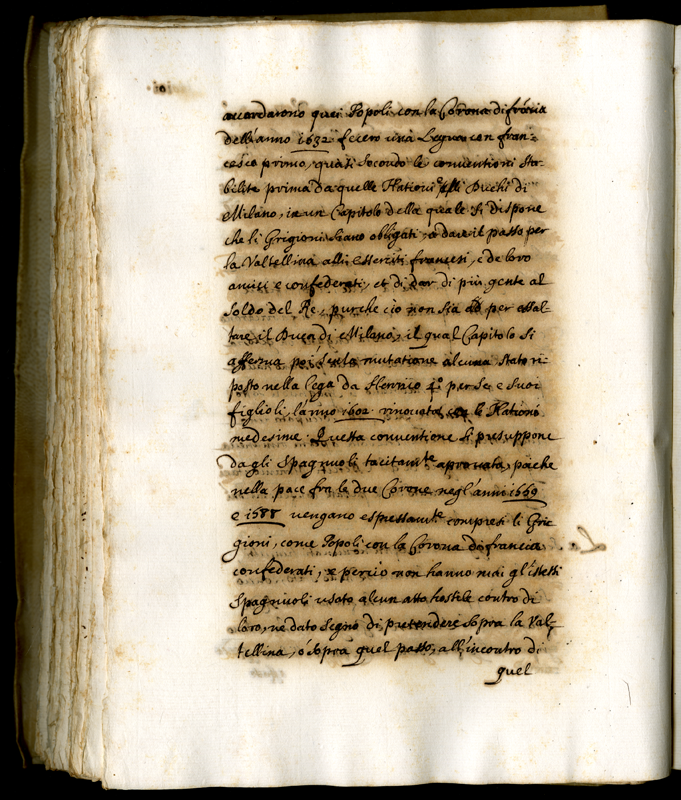 accordarono quei Popoli con la Corona di frácia
dell'anno 1632 fecero una Legua con fran=
cesco primo, quasi secondo le conventioni sta-
bilite prima da quelle Nationi Duchi di
Milano, in un Capitolo della quale si dispone
che li Grigioni siano obligati, a dare il passo per
la Valtellina alli esserciti francesi, e de loro
amici e confederati, et di dar di più gente al
soldo del Re, purche ciò non sia per assal-
tare il Duca di Milano, il qual Capitolo si
afferma poi senza mutatione alcuna stato ri-
posto nella Lega da Henrico 4.º per se, e suoi
figlioli, l'anno 1602. rinovata le Nationi
medesime. Questa conventione si presuppone
dagli Spagnuoli tacitamte aprovata, poiche
nella pace fra le due Corone negl'anni 1559
e 1588 vengano espressamte compresi li Gri
gioni, come Popoli con la Corona di francia
confederati, e perciò non hanno mai gl'istessi
Spagnuoli usato alcun atto hostile contro di
loro, ne dato segno di pretendere sopra la Val-
tellina, ò sopra quel passo, all'incontro di
quel